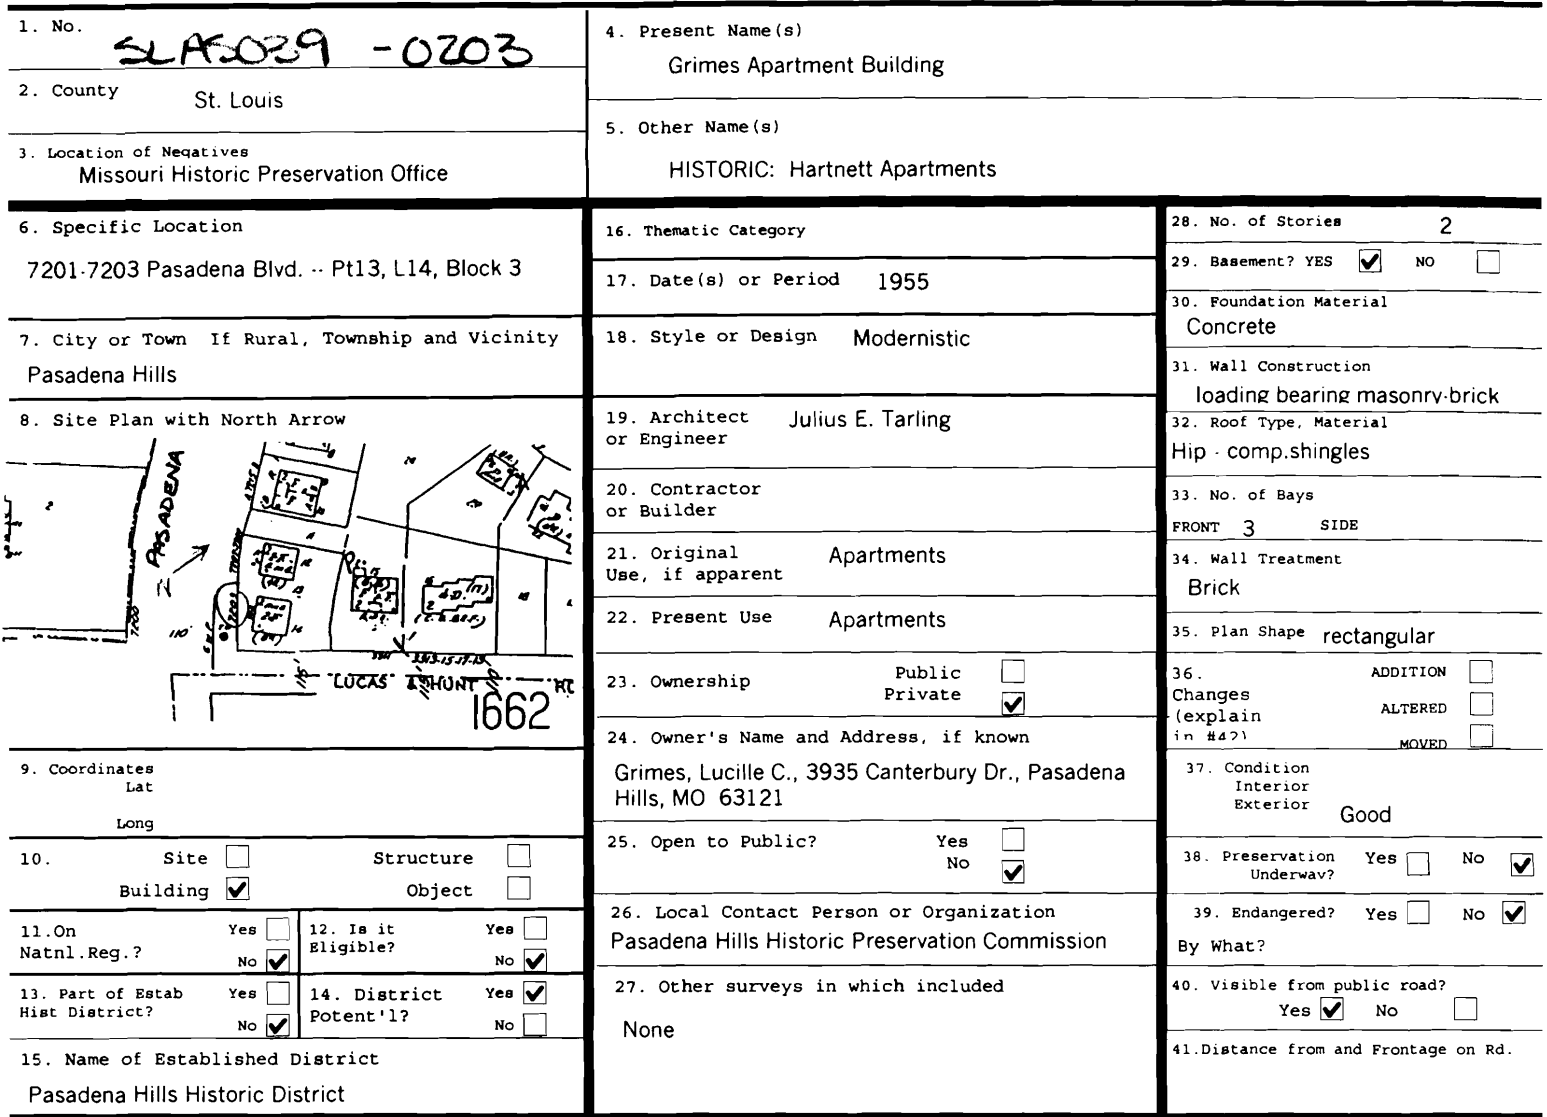 1. No.
SLAS039 -0203
2. County
St. Louis
3. Location of Negatives
Missouri Historic Preservation Office
4. Present Name(s)
Grimes Apartment Building
5. Other Name(s)
HISTORIC: Hartnett Apartments
6. Specific Location
7201-7203 Pasadena Blvd. -- Pt13, L14, Block 3
7. City or Town If Rural, Township and Vicinity
Pasadena Hills
8. Site Plan with North Arrow
PASADENA
LUCAS & HUNT RD
1662
9. Coordinates
Lat
Long
10. Site Structure
Building Object
11.On Natnl.Reg.? Yes No
12. Is it Eligible? Yes No
13. Part of Estab Hist District? Yes No
14. District Potent'l? Yes No
15. Name of Established District
Pasadena Hills Historic District
16. Thematic Category
17. Date(s) or Period 1955
18. Style or Design Modernistic
19. Architect Julius E. Tarling
or Engineer
20. Contractor
or Builder
21. Original Apartments
Use, if apparent
22. Present Use Apartments
23. Ownership Public
Private
24. Owner's Name and Address, if known
Grimes, Lucille C., 3935 Canterbury Dr., Pasadena
Hills, MO 63121
25. Open to Public? Yes
No
26. Local Contact Person or Organization
Pasadena Hills Historic Preservation Commission
27. Other surveys in which included
None
28. No. of Stories 2
29. Basement? YES NO
30. Foundation Material
Concrete
31. Wall Construction
loading bearing masonry-brick
32. Roof Type, Material
Hip - comp.shingles
33. No. of Bays
FRONT 3 SIDE
34. Wall Treatment
Brick
35. Plan Shape rectangular
36. ADDITION
Changes
(explain ALTERED
in #42) MOVED
37. Condition
Interior
Exterior Good
38. Preservation Yes No
Underway?
39. Endangered? Yes No
By What?
40. Visible from public road?
Yes No
41.Distance from and Frontage on Rd.